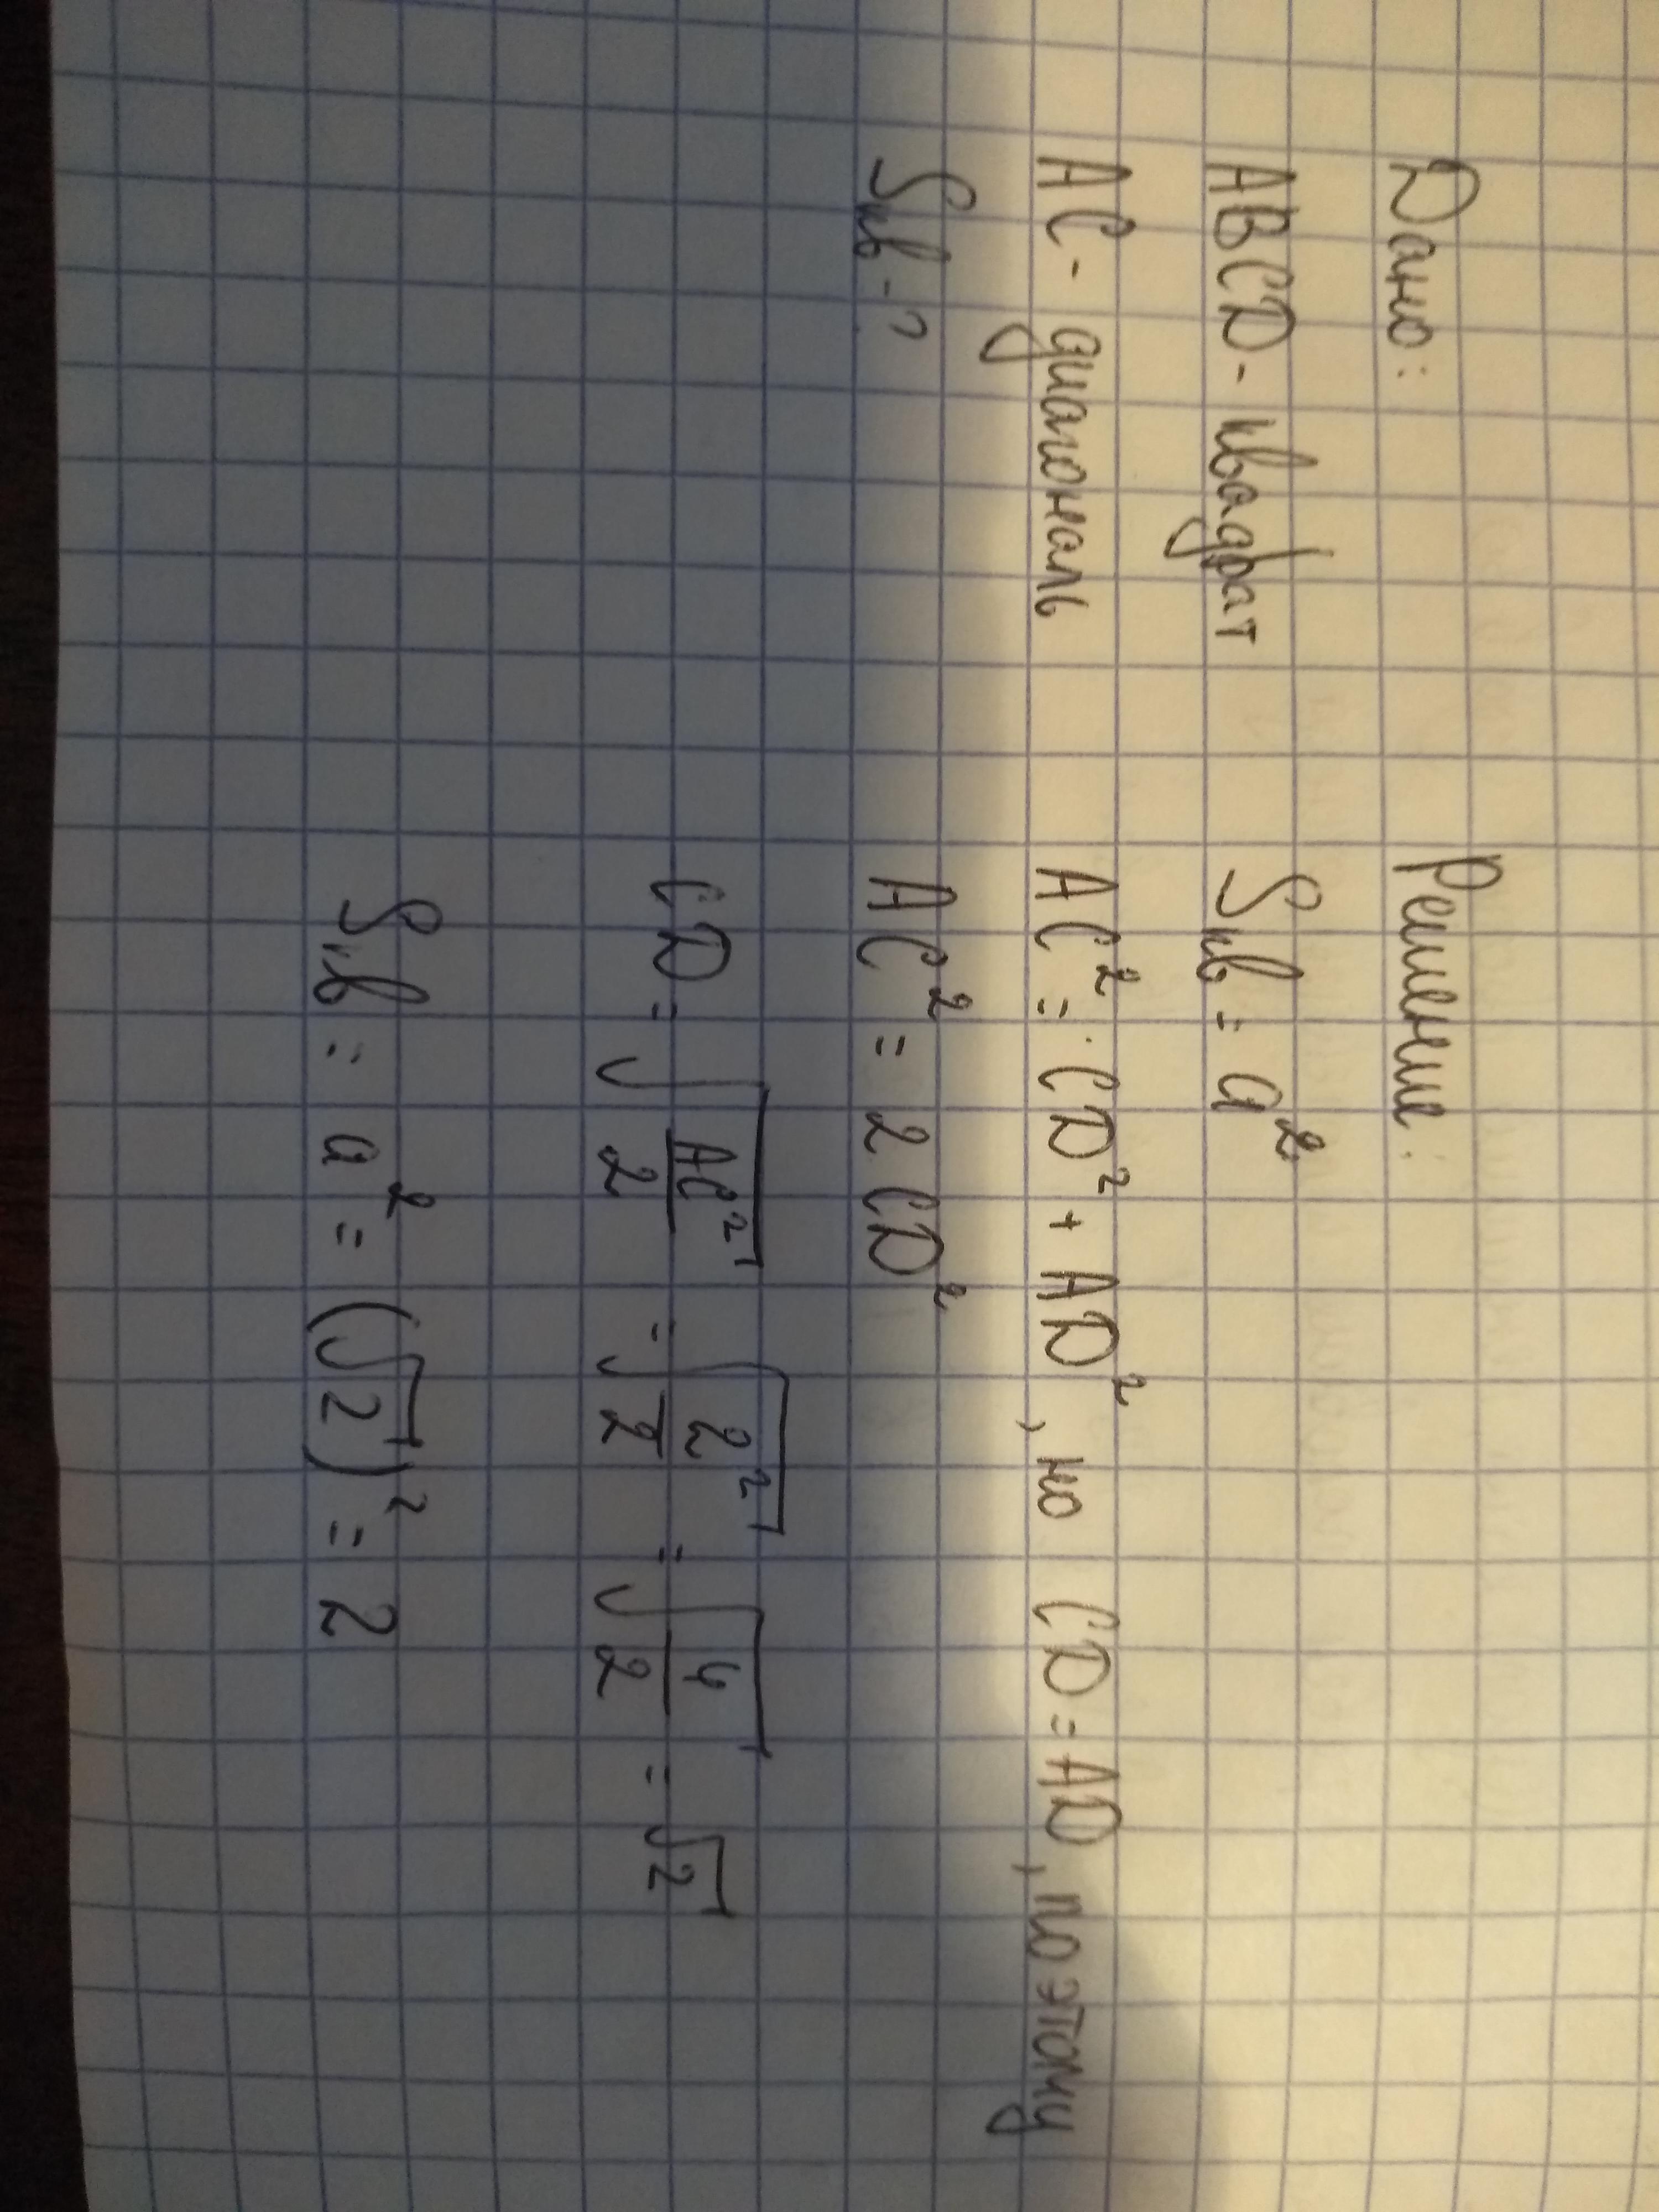 Дано:
ABCD - квадрат
AC - диагональ
Sкв - ?
Решение:
Sкв = a²
AC² = CD² + AD², но CD = AD, поэтому
AC² = 2 CD²
CD = √(AC²/2) = √(2²/2) = √(4/2) = √2
Sкв = a² = (√2)² = 2